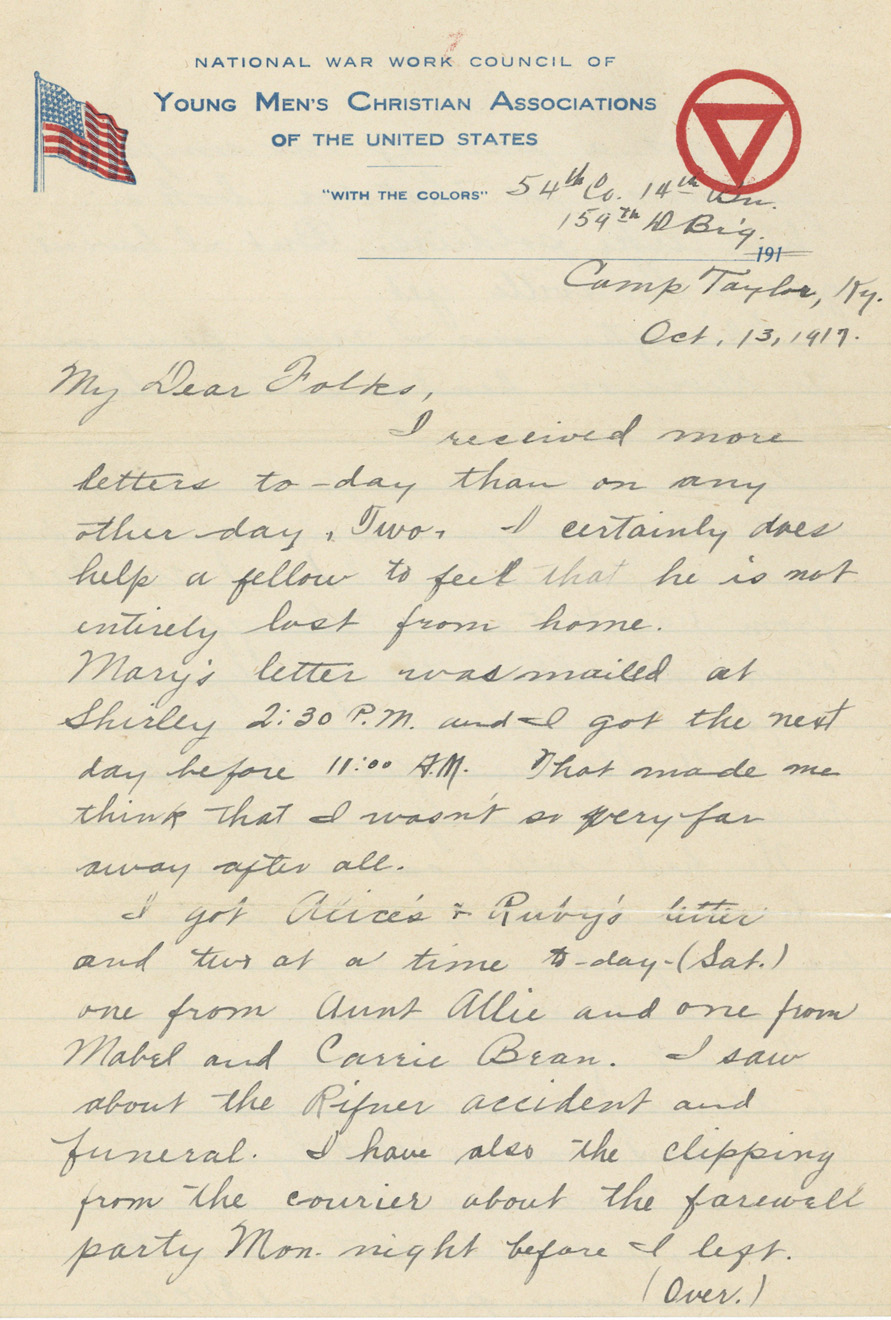 NATIONAL WAR WORK COUNCIL OF
YOUNG MEN'S CHRISTIAN ASSOCIATIONS
OF THE UNITED STATES
"WITH THE COLORS"
54th Co. 14th Bn.
159th D Brig.
191
Camp Taylor, Ky.
Oct. 13, 1917.
My Dear Folks,
I received more
letters to-day than on any
other day, Two. I certainly does
help a fellow to feel that he is not
entirely lost from home.
Mary's letter was mailed at
Shirley 2:30 P.M. and I got the next
day before 11:00 A.M. That made me
think that I wasn't so very far
away after all.
I got Alice's & Ruby's letter
and two at a time to-day-(Sat.)
one from Aunt Allie and one from
Mabel and Carrie Bean. I saw
about the Rifner accident and
funeral. I have also the clipping
from the courier about the farewell
party Mon. night before I left.
(Over.)